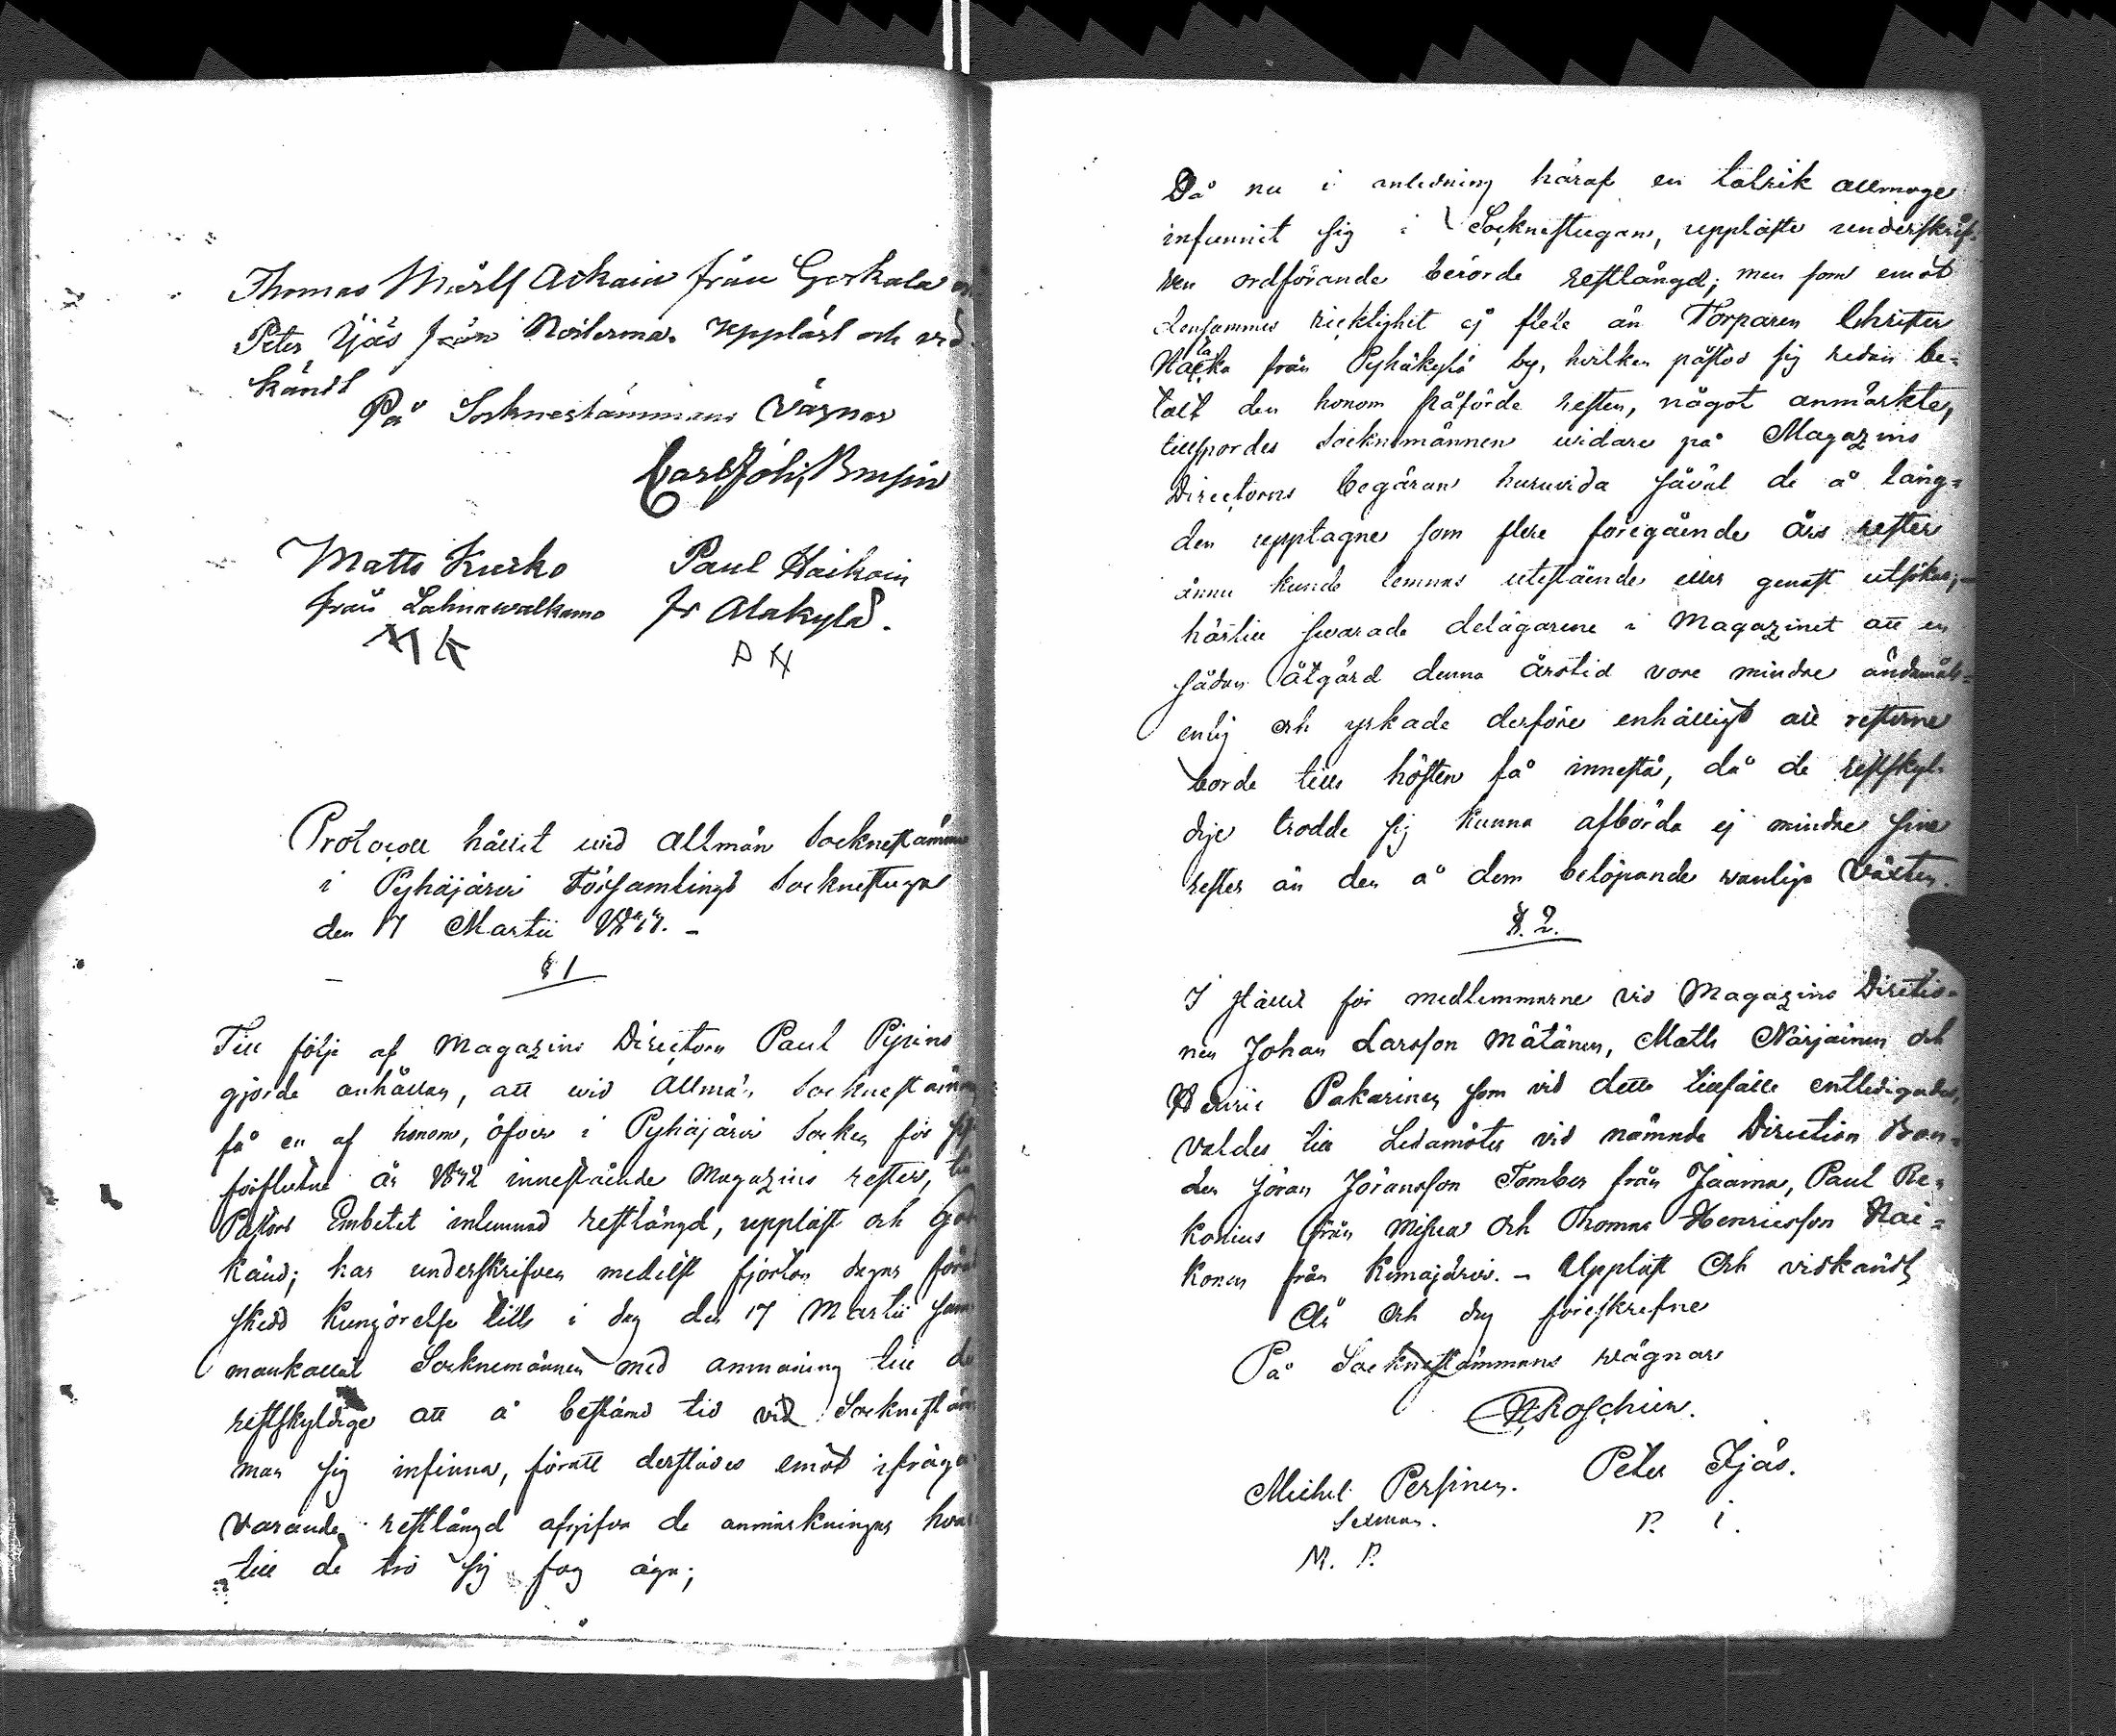 Thomas Mårts Askain från Gorkala
Peter Ijäs från Noiterma. Uppläst och vid
kändt
På Socknestämmans Vägnar
Carl Joh.
Matts Kurko Paul Haikain
från Lahnawalkama fr Alakylä.
M K P H
Protocoll hållit wid allmän Sockneståmma
i Pyhäjärvi Församlings Socknestuga
den 17 Martii
§ 1
Till följe af Magazins Directorn Paul Pipins
gjorde anhållan, att wid allmän Sockneståmma
få en af honom, öfver i Pyhäjärvi Socken för
förflutne år 1842 innestående Magazins rester, till
Pastors Embetet inlemnad restlängd, uppläst och god
känd; har underskrifven medelst fjorton dagar före
skedd kungörelse tills i dag den 17 Martii sam
mankallat Socknemännen med anmaning till de
restskyldige att å bestämd tid vid Sockneståm
man sig infinna, föratt derstädes emot ifråga
varande restlängd afgifva de anmärkningar hvar
till de tro sig fog äga;
Då nu i anledning häraf en talrik allmoge
infunnit sig i Socknestugan, uppläste underskrif-
ven ordförande berörde restlängd; men som emot
densammes ricktighet ej flere än Torparen Christer
från Pyhäkylä by, hvilken påstod sig redan be=
talt den honom påförde resten, något anmärkte,
tillspordes Socknemännen widare på Magazins
Directorns begäran huruvida såväl de å läng=
den upptagne som flere föregående års rester
ännu kunde lemnas utestående eller genast utsökas;
härtill swarade delägarene i Magazinet att en
sådan åtgärd denna årstid vore mindre ändamåls=
enlig och yrkade derföre enhälligt att resterne
borde tills hösten få innestå, då de restskyl-
dije trodde sig kunna afbörda ej mindre sine
rester än den å dem belöpande wanliga Växten.
§. 2.
I stället för medlemmarne vid Magazins Directio-
nen Johan Larsson Mätänen, Matts Närjäinen och
Henric Pakarinen som vid dette tillfälle entledigades,
valdes till Ledamöter vid nämnde Direction Bon=
den Jöran Jöransson Tomber från Jaama, Paul Re=
konius från och Thomas Henricsson Nai=
konen från Kimajärvi. - Uppläst och vidkändt,
År och dag föreskrefne
På Socknestämmans wägnar
Roschier.
Michel Persinen. Peter Ijäs.
Sexman. P. I.
M. P.